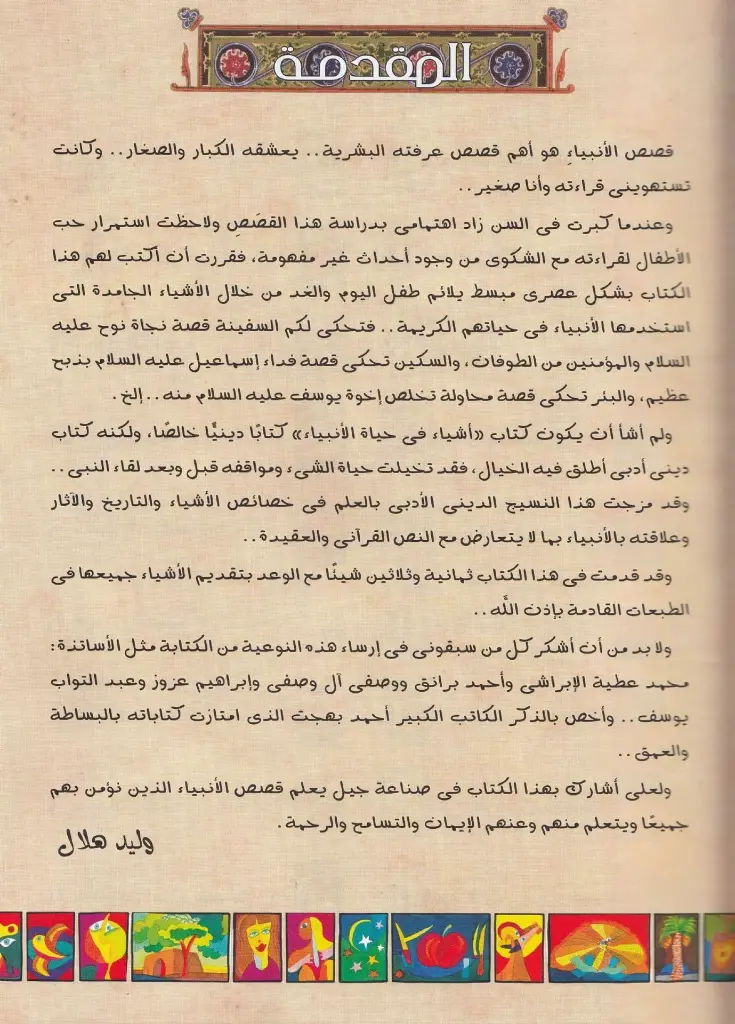 المقدمة
قصص الأنبياءِ هو أهم قصص عرفته البشرية.. يعشقه الكبار والصغار.. وكانت
تستهوينى قراءته وأنا صغير..
وعندما كبرت فى السن زاد اهتمامى بدراسة هذا القصَص ولاحظت استمرار حب
الأطفال لقراءته مع الشكوى من وجود أحداث غير مفهومة، فقررت أن أكتب لهم هذا
الكتاب بشكل عصرى مبسط يلائم طفل اليوم والغد من خلال الأشياء الجامدة التى
استخدمها الأنبياء فى حياتهم الكريمة.. فتحكى لكم السفينة قصة نجاة نوح عليه
السلام والمؤمنين من الطوفان، والسكين تحكى قصة فداء إسماعيل عليه السلام بذبح
عظيم، والبئر تحكى قصة محاولة تخلص إخوة يوسف عليه السلام منه..إلخ.
ولم أشأ أن يكون كتاب «أشياء فى حياة الأنبياء» كتابًا دينيًّا خالصًا، ولكنه كتاب
دينى أدبى أطلق فيه الخيال، فقد تخيلت حياة الشىء ومواقفه قبل وبعد لقاء النبى..
وقد مزجت هذا النسيج الدينى الأدبى بالعلم فى خصائص الأشياء والتاريخ والآثار
وعلاقته بالأنبياء بما لا يتعارض مع النص القرآنى والعقيدة..
وقد قدمت فى هذا الكتاب ثمانية وثلاثين شيئًا مع الوعد بتقديم الأشياء جميعها فى
الطبعات القادمة بإذن اللَّه..
ولا بد من أن أشكر كل من سبقونى فى إرساء هذه النوعية من الكتابة مثل الأساتذة:
محمد عطية الإبراشى وأحمد برانق ووصفى آل وصفى وإبراهيم عزوز وعبد التواب
يوسف.. وأخص بالذكر الكاتب الكبير أحمد بهجت الذى امتازت كتاباته بالبساطة
والعمق..
ولعلى أشارك بهذا الكتاب فى صناعة جيل يعلم قصص الأنبياء الذين نؤمن بهم
جميعًا ويتعلم منهم وعنهم الإيمان والتسامح والرحمة.
وليد هلال